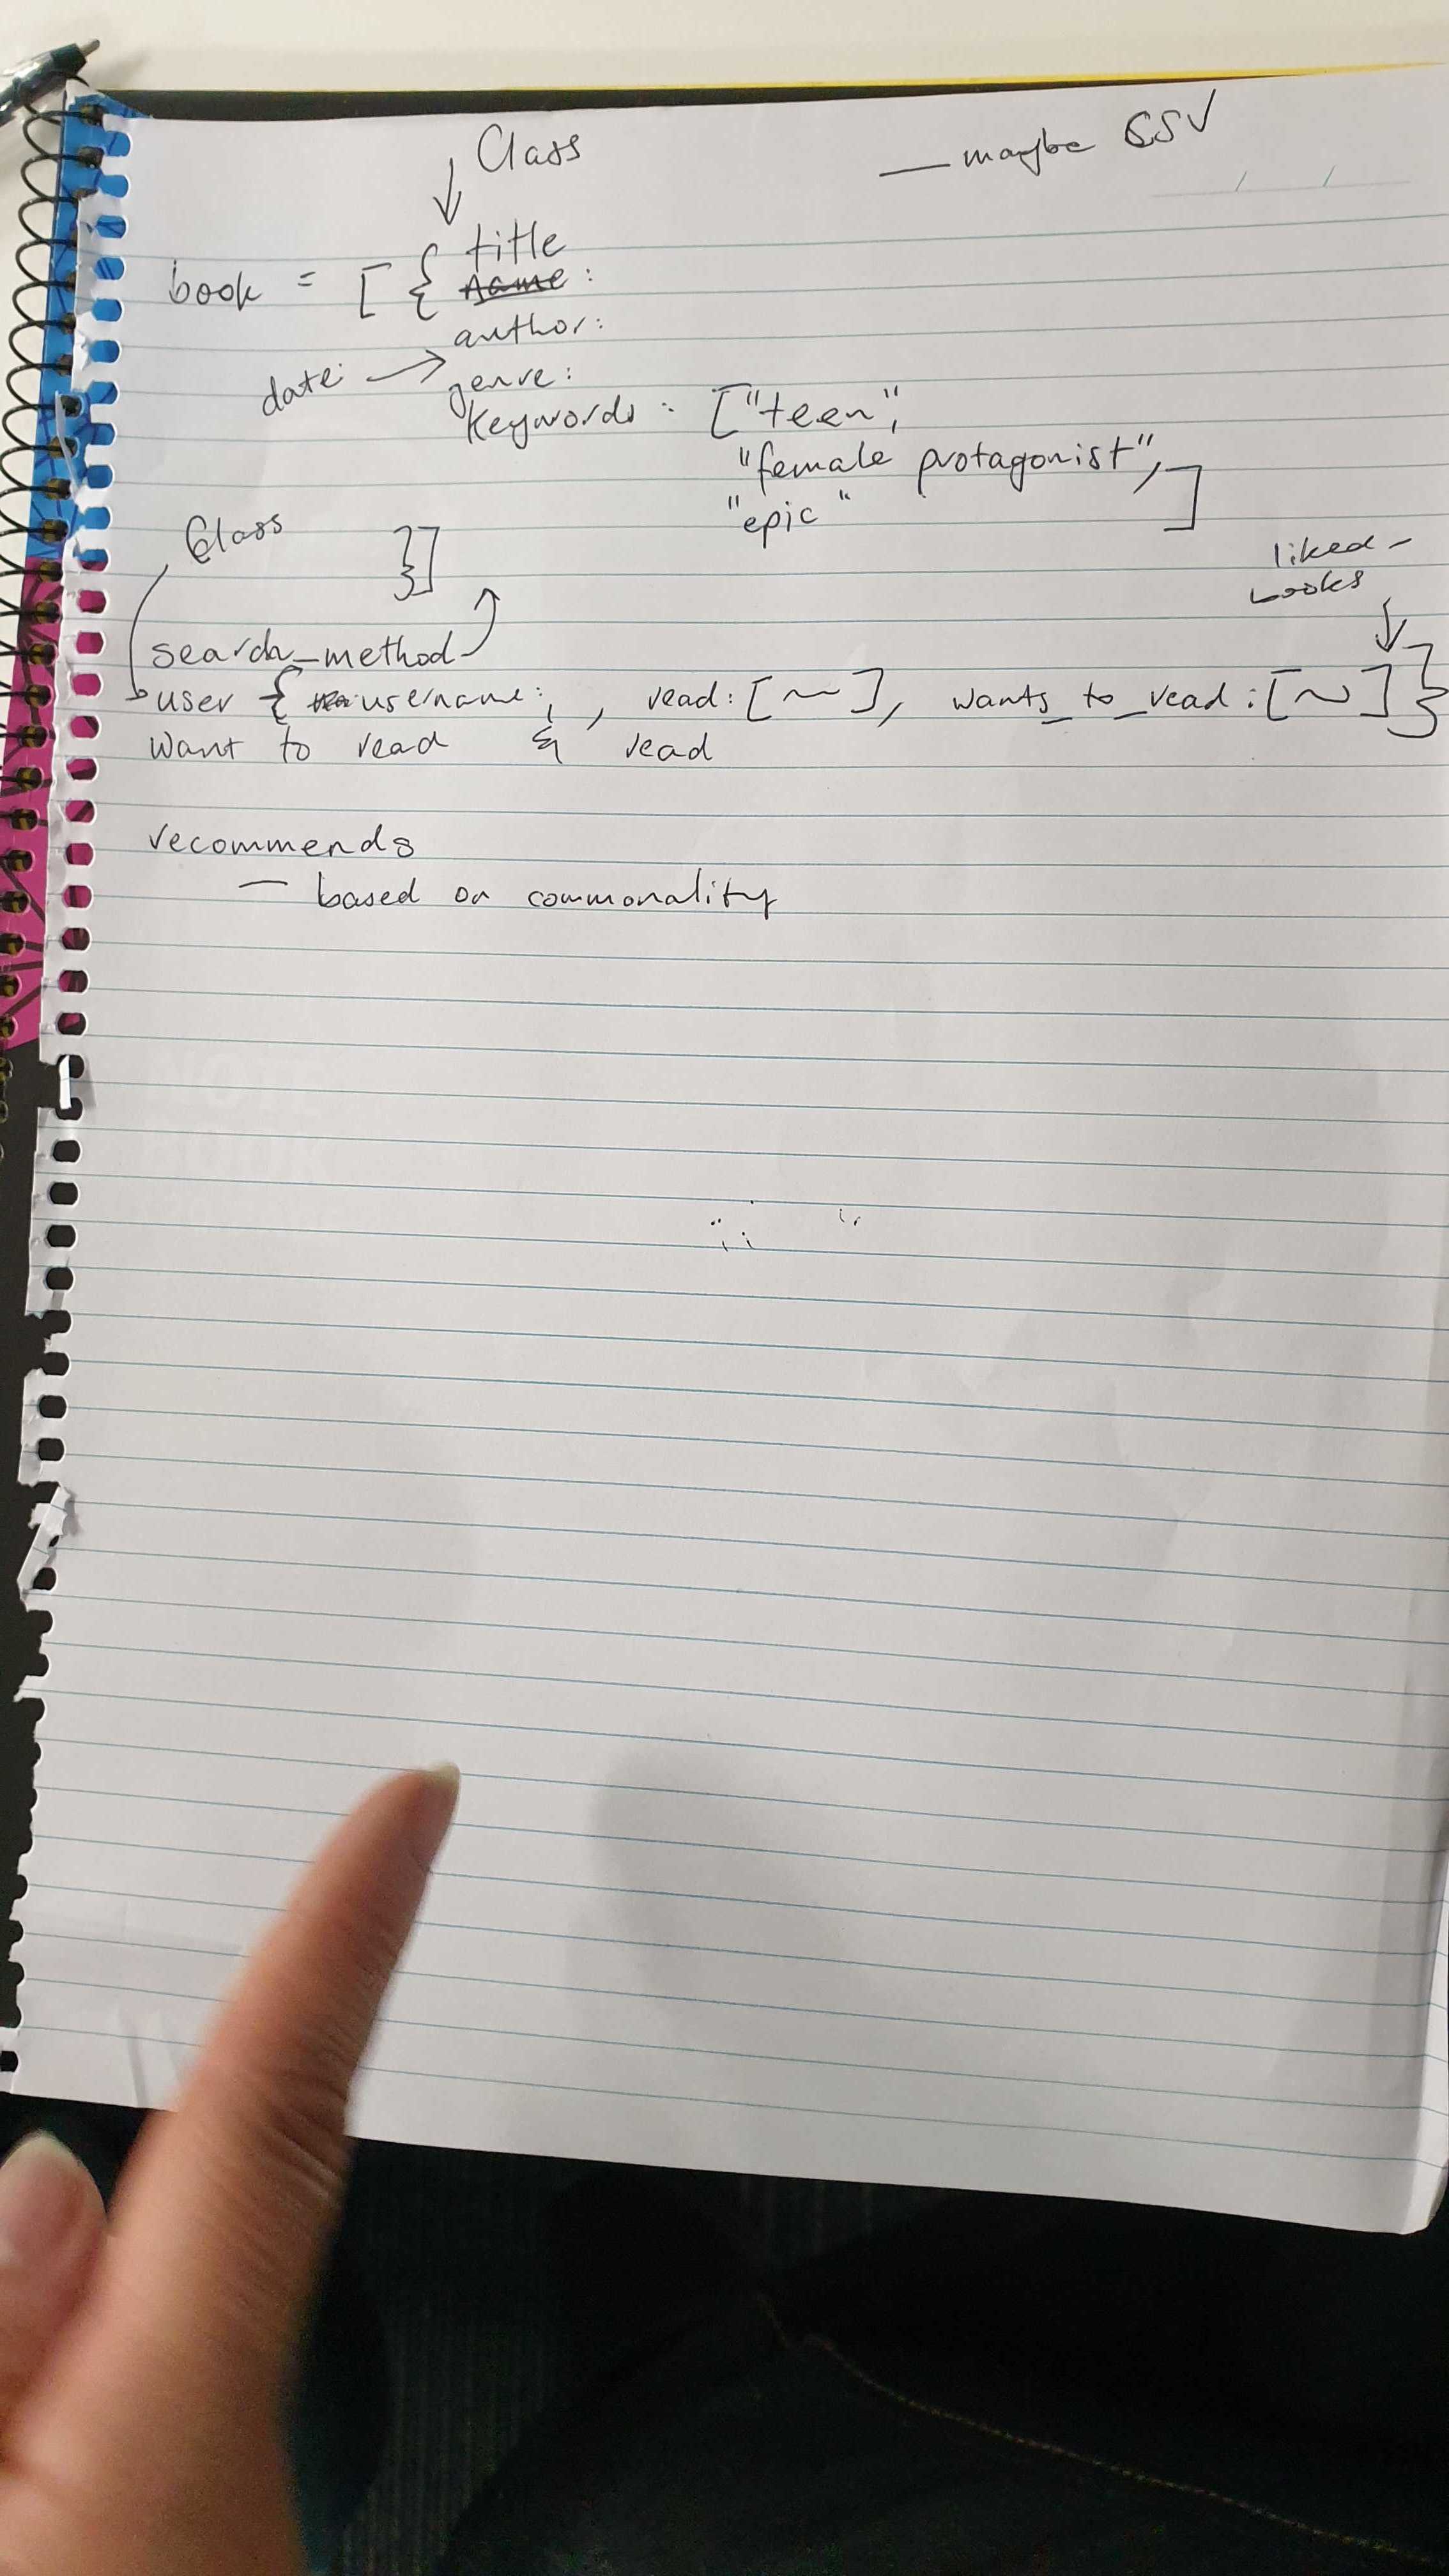 Class
— maybe CSV
title
book = [ { name :
author:
date: → genre:
keywords : ["teen",
"female protagonist",
"epic" ]
Class }]
liked_
books
search_method
user { username: , read: [~], wants_to_read: [~] }
want to read & read
recommends
— based on commonality